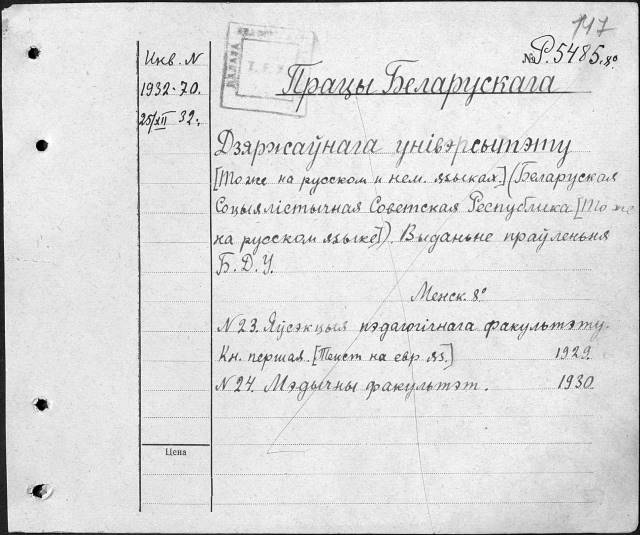 147
№ Р. 5485. 8°
Инв. N
1932-70.
25/XII 32.
Працы Беларускага
Дзяржаўнага унівэрсытэту
[То же на русском и нем. языках.] (Беларуская
Соцыялістычная Советская Рэспубліка [То же
на русском языке]). Выданьне праўленьня
Б. Д. У.
Менск. 8°
N 23. Яўсэкцыя пэдагогічнага факультэту.
Кн. першая. [Текст на евр. яз.] 1929.
N 24. Мэдычны факультэт. 1930.
Цена